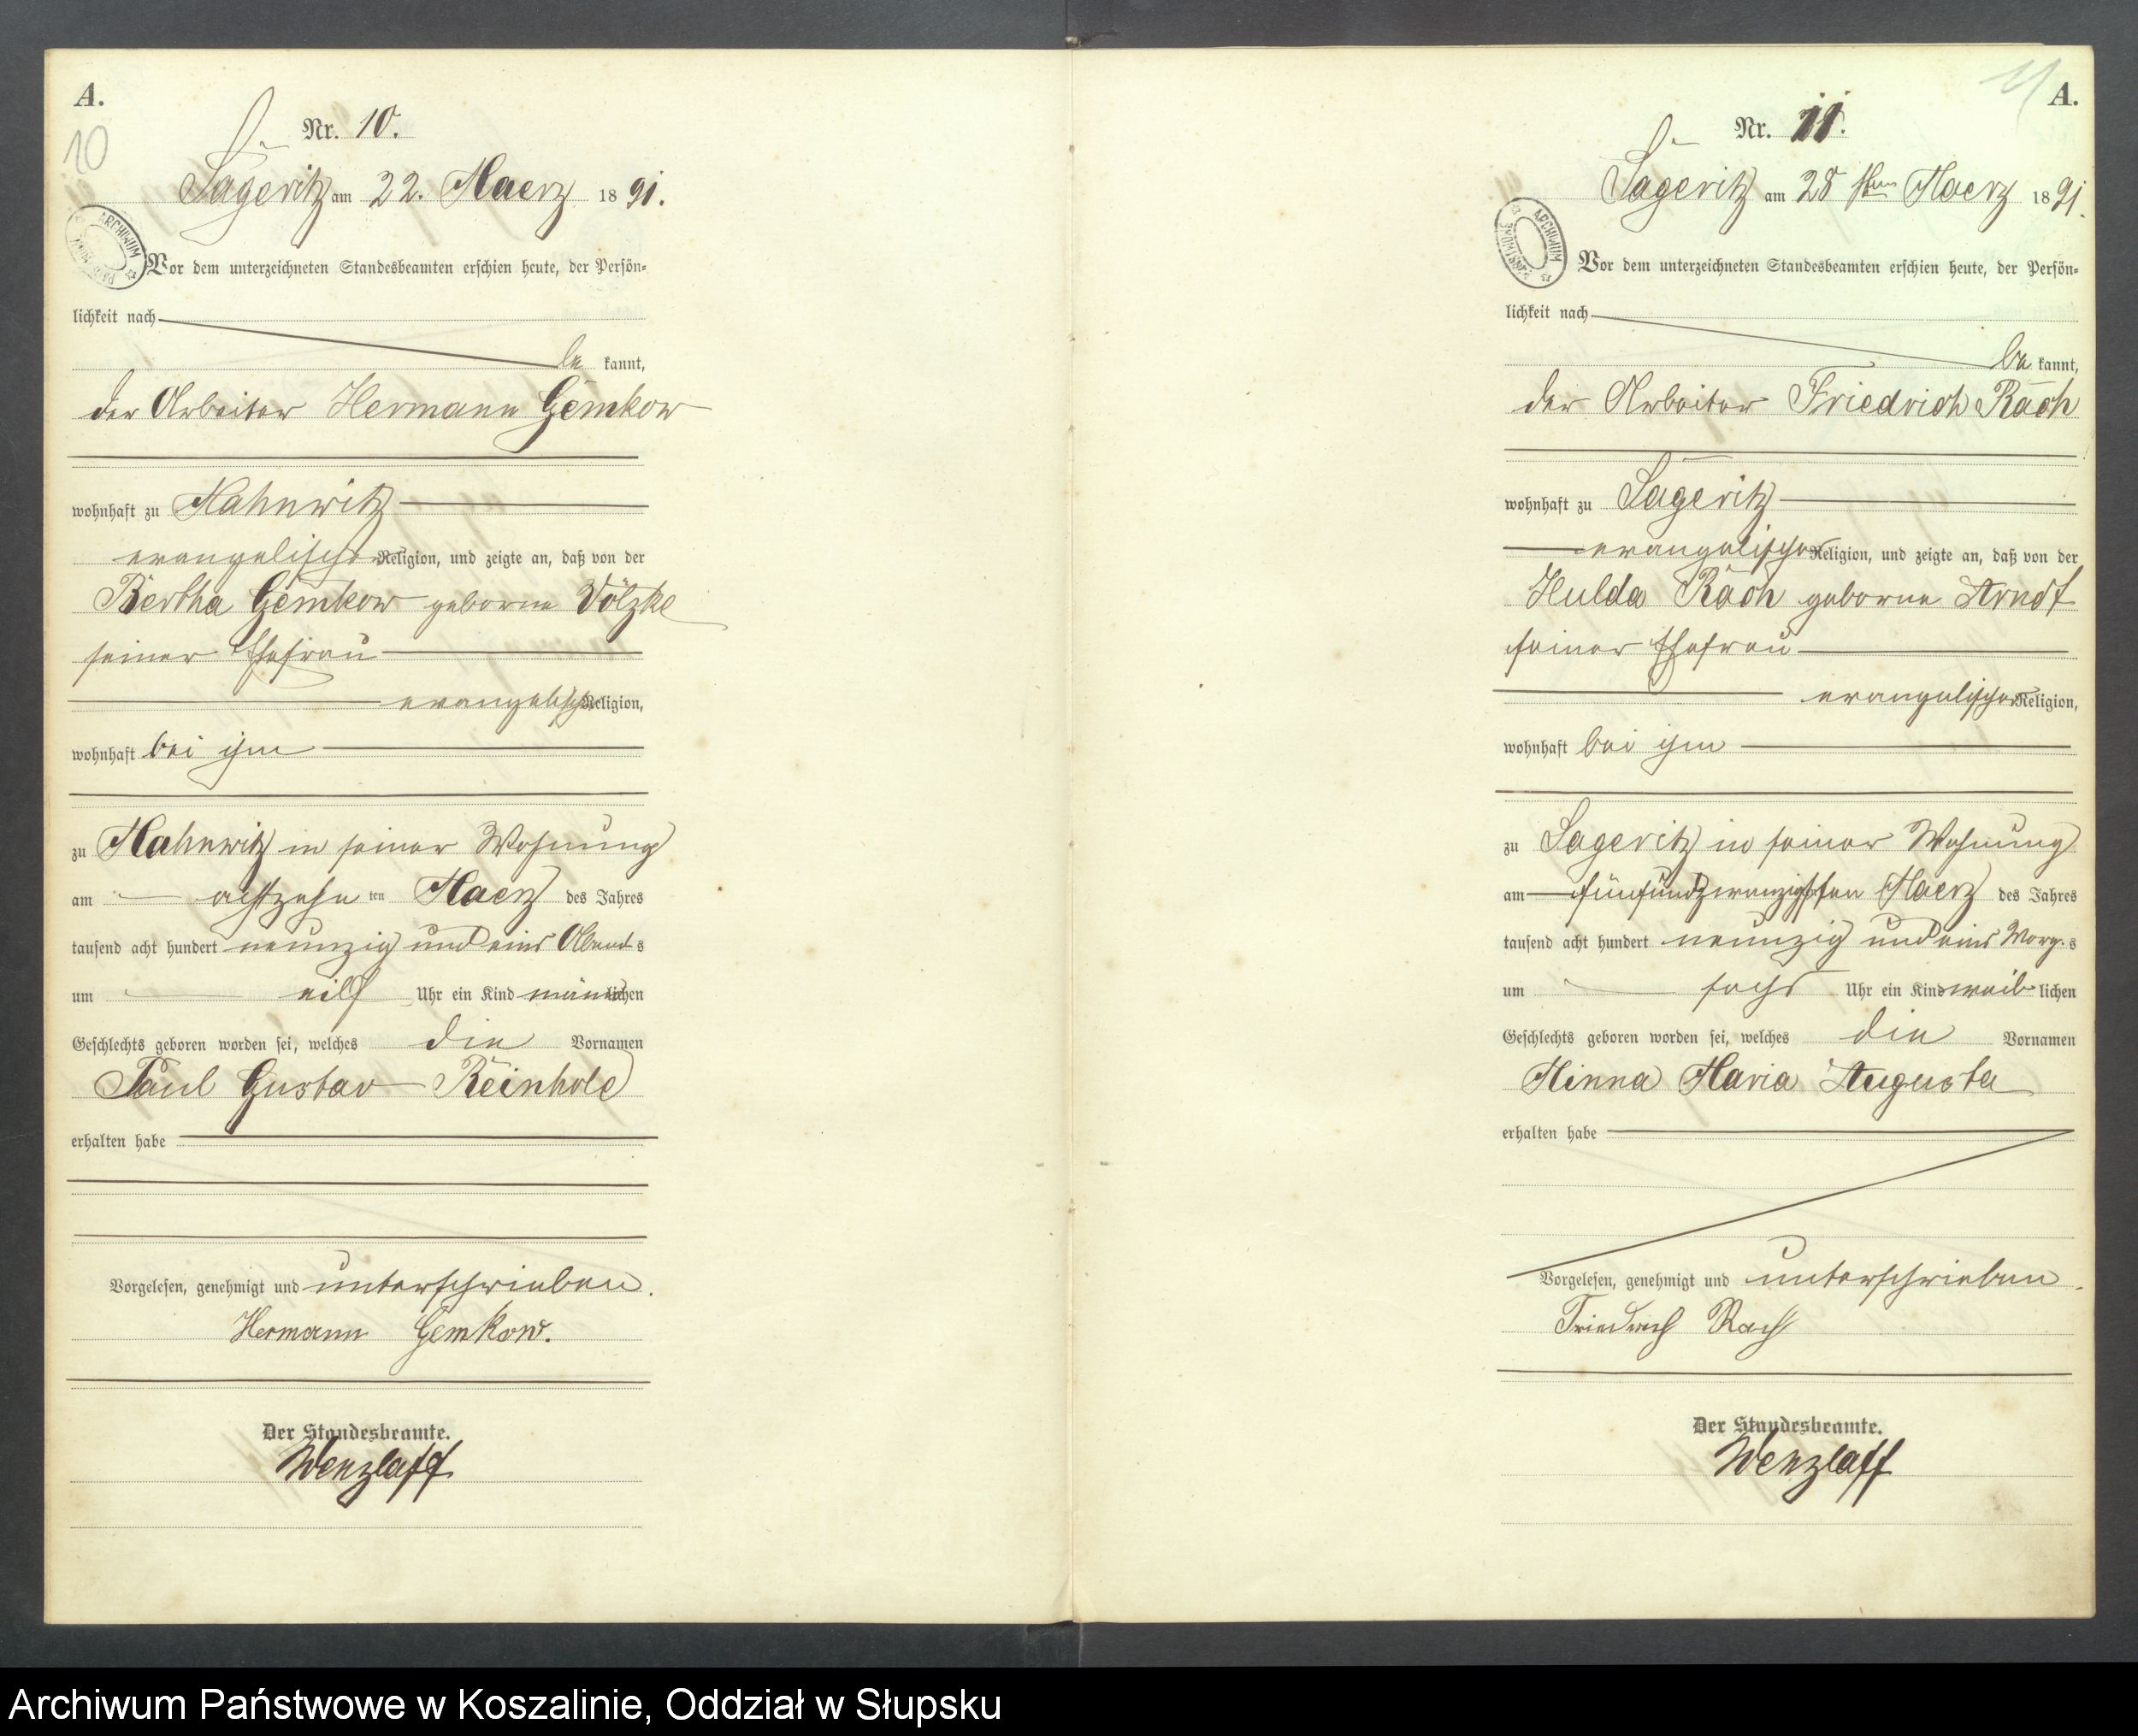 A.
10
Nr. 10.
Sageritz am 22. Maerz 1891.
ARCHIWUM
Vor dem unterzeichneten Standesbeamten erschien heute, der Persön-
lichkeit nach
be kannt,
der Arbeiter Hermann Gemkow
wohnhaft zu Mahnwitz
evangelischer Religion, und zeigte an, daß von der
Bertha Gemkow geborne Völzke
seiner Ehefrau
evangelischer Religion,
wohnhaft bei ihm
zu Mahnwitz in seiner Wohnung
am achtzehn ten Maerz des Jahres
tausend acht hundert neunzig und eins Abends
um eilf Uhr ein Kind männlichen
Geschlechts geboren worden sei, welches die Vornamen
Paul Gustav Reinhold
erhalten habe
Vorgelesen, genehmigt und unterschrieben.
Hermann Gemkow.
Der Standesbeamte.
Wenzlaff
11
A.
Nr. 11.
Sageritz am 28 ten Maerz 1891.
ARCHIWUM
Vor dem unterzeichneten Standesbeamten erschien heute, der Persön-
lichkeit nach
be kannt,
der Arbeiter Friedrich Rach
wohnhaft zu Sageritz
evangelischer Religion, und zeigte an, daß von der
Hulda Rach geborne Arndt
seiner Ehefrau
evangelischer Religion,
wohnhaft bei ihm
zu Sageritz in seiner Wohnung
am fünfundzwanzigsten Maerz des Jahres
tausend acht hundert neunzig und eins Morg.s
um sechs Uhr ein Kind weiblichen
Geschlechts geboren worden sei, welches die Vornamen
Minna Maria Augusta
erhalten habe
Vorgelesen, genehmigt und unterschrieben.
Friedrich Rach
Der Standesbeamte.
Wenzlaff
Archiwum Państwowe w Koszalinie, Oddział w Słupsku